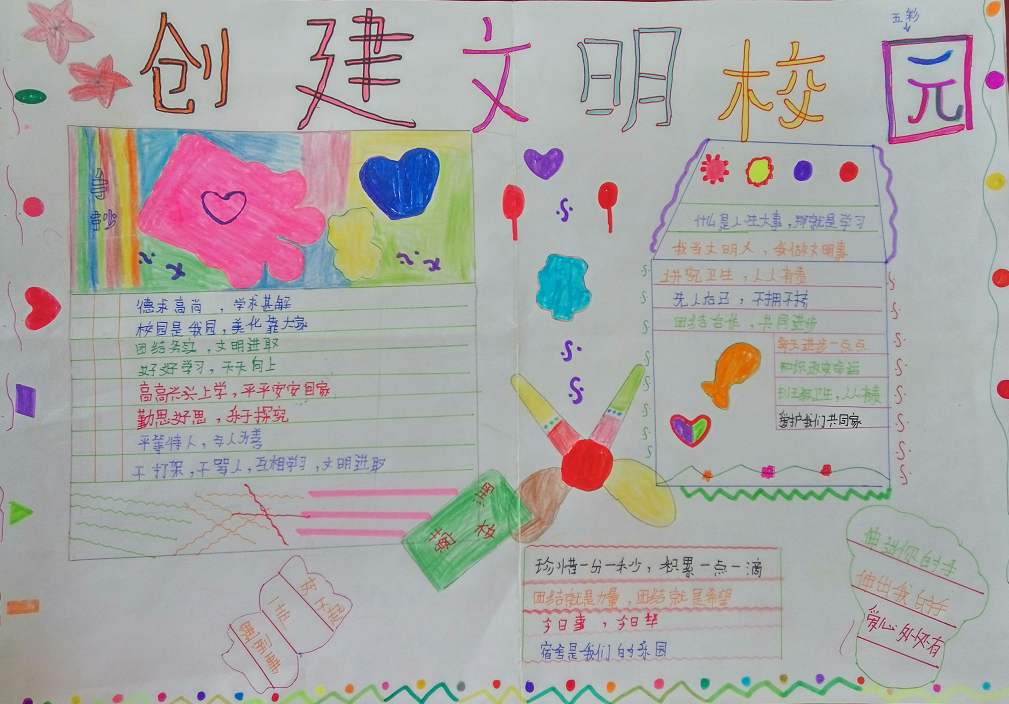 五彩
创建文明校园
手
抄
德求高尚，学求甚解
校园是我园，美化靠大家
团结务红，文明进取
好好学习，天天向上
高高兴兴上学，平平安安回家
勤思好思，乐于探究
平等待人，与人为善
不打架，不骂人，互相学习，文明进取
什么是人生大事，那就是学习
我当文明人，我做文明事
讲究卫生，人人有责
先人后己，不拥不挤
团结合作，共同进步
每天进步一点点
知识改变命运
人人有责
爱护我们共同家
黑板擦
珍惜一分一秒少，积累一点一滴
团结就是力量，团结就是希望
今日事，今日毕
宿舍是我们的乐园
伸进你的手
伸出我的手
爱心处处有
一班